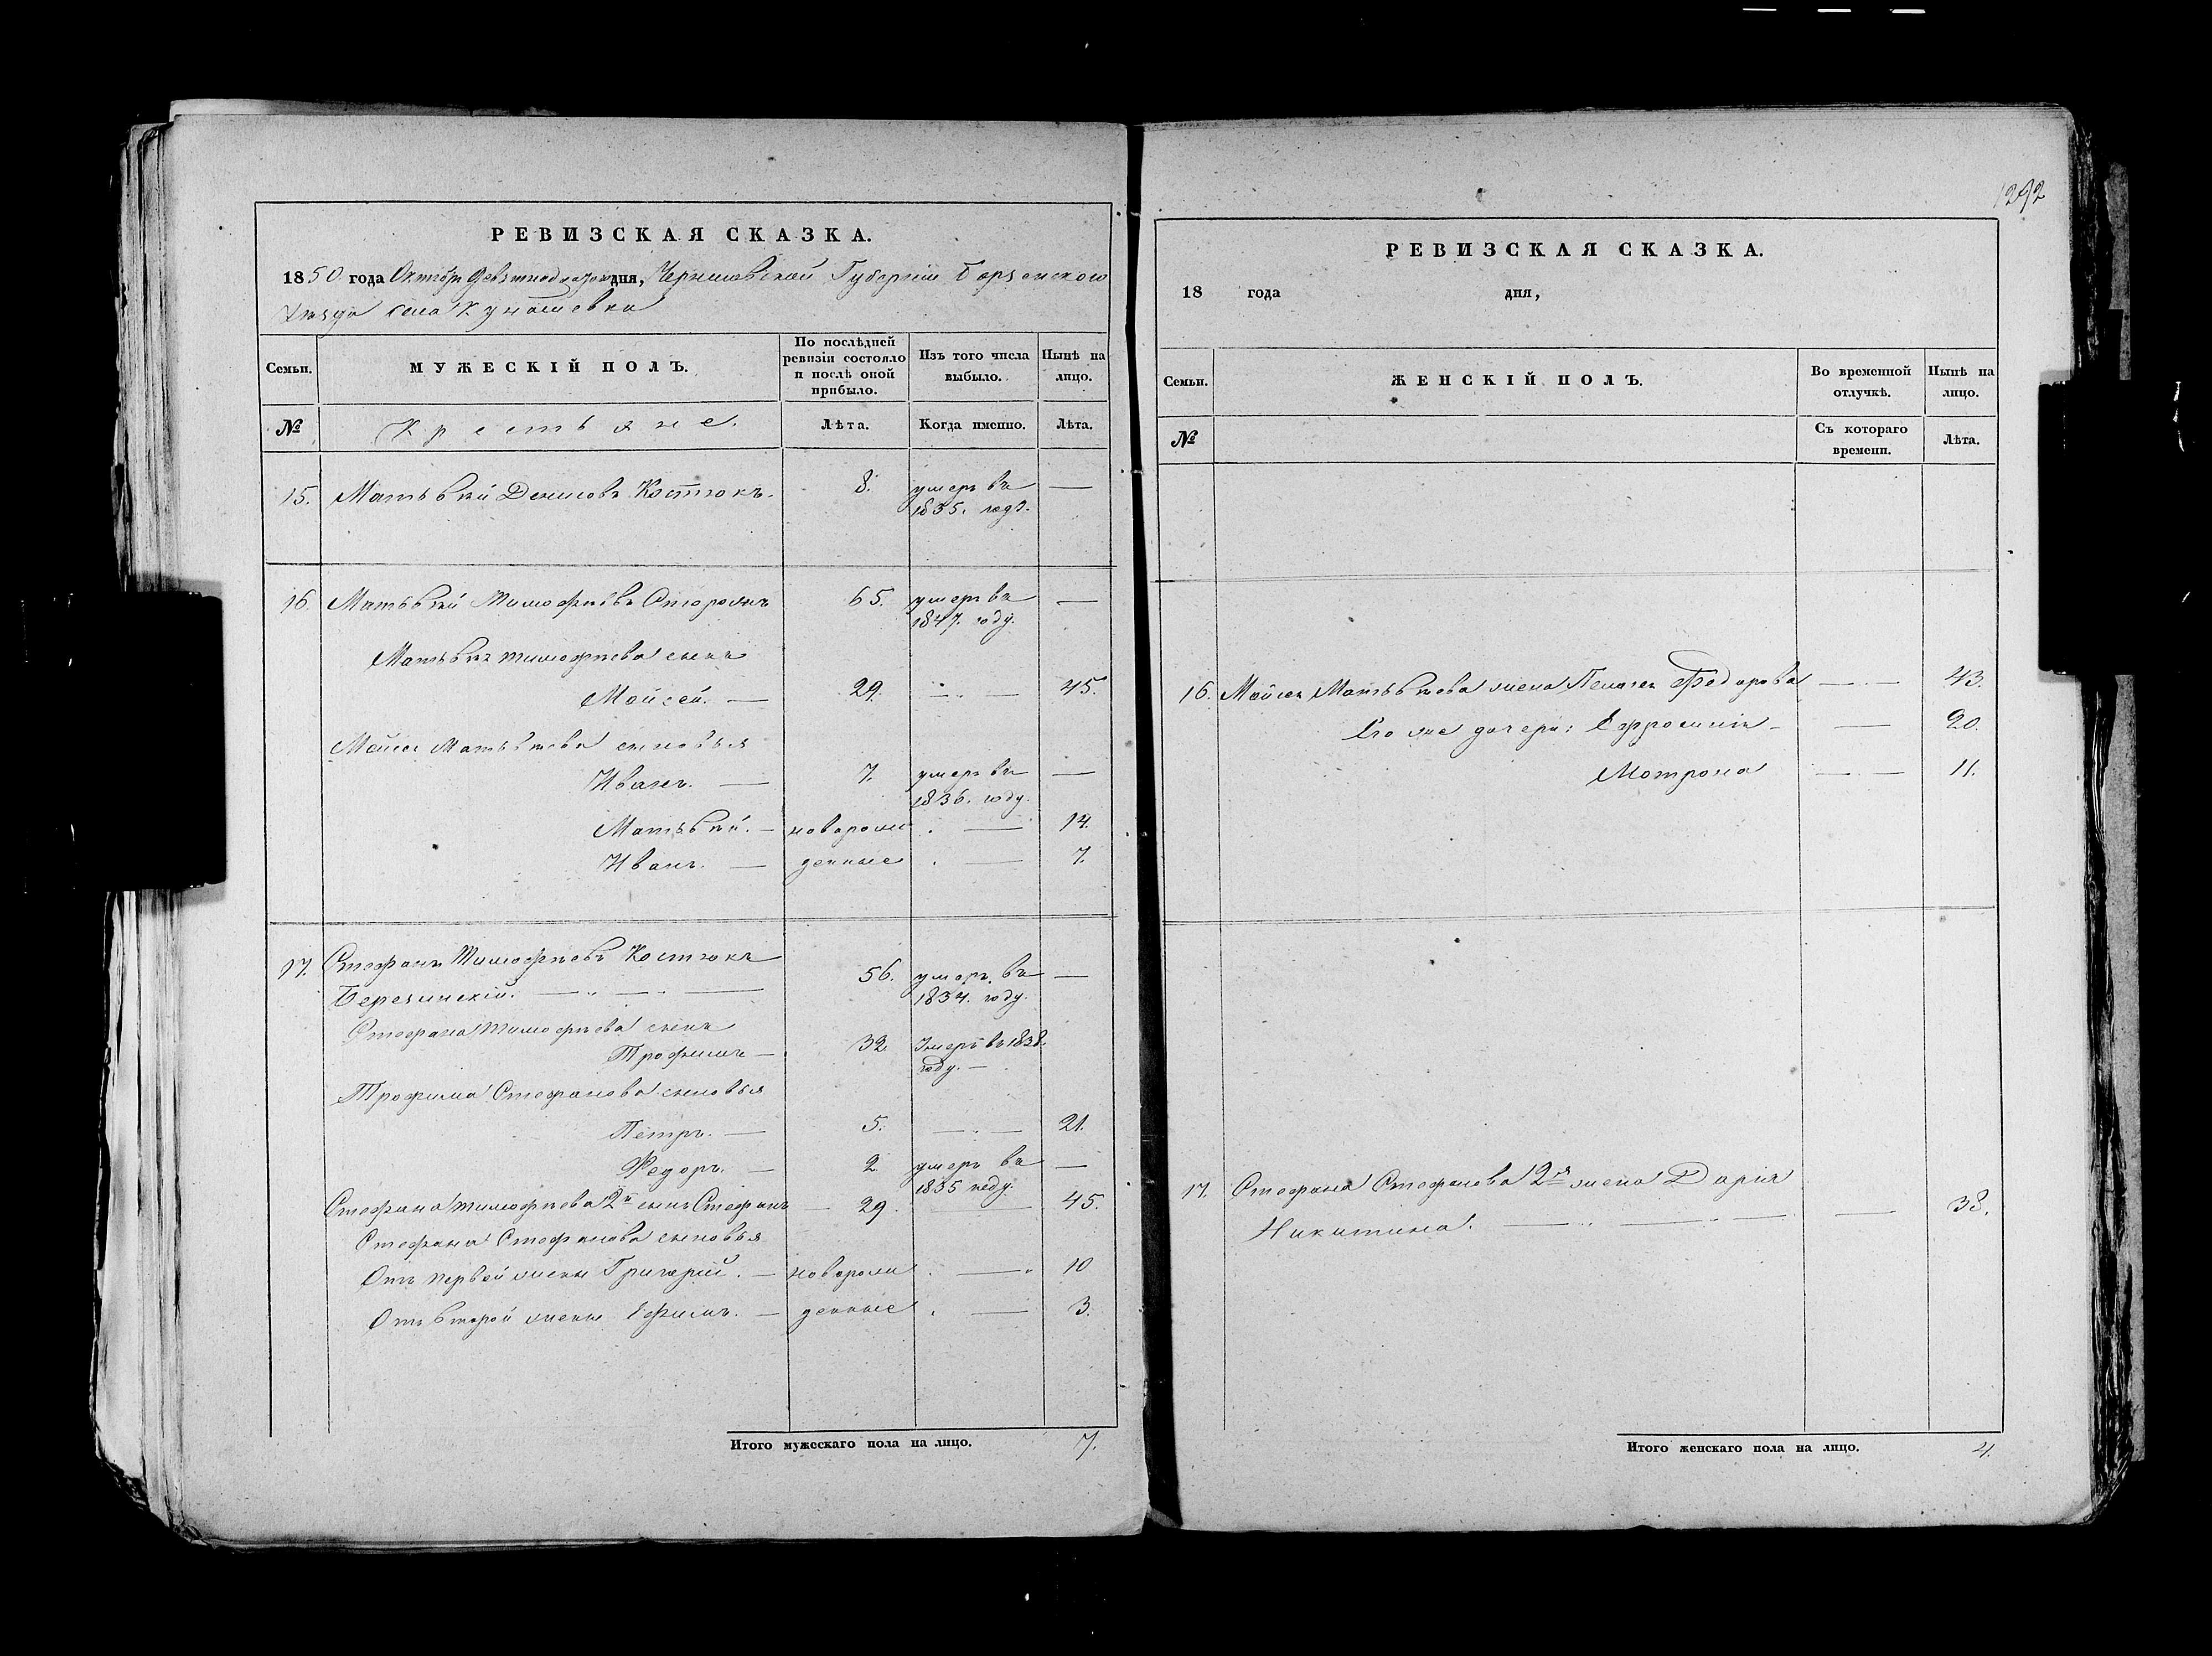 1292
РЕВИЗСКАЯ СКАЗКА.
1850 года Октября девятнадцатого дня, Черниговской Губерніи Борзенского
Уезда села Кунашевки
Семьи.
МУЖЕСКІЙ ПОЛЪ.
По послѣдней ревизіи состояло и послѣ оной прибыло.
Изъ того числа выбыло.
Нынѣ на лицо.
№
Крестьяне.
Лѣта.
Когда именно.
Лѣта.
15. Матвѣй Денисовъ Костюкъ. 8. умеръ въ —
1835. годѣ.
16. Матвѣй Тимофѣевъ 65. умеръ въ —
1847. году.
Матвѣя Тимофѣева сынъ
Мойсей. — 29. — 45.
Мойсея Матвѣева сыновья
Иванъ. — 7. умеръ въ —
1836. году.
Матвѣй. — новорож . — 14.
Иванъ. — денные . — 7.
17. Стефанъ Тимофѣевъ Костюкъ
Березинскій. — 56. умеръ въ —
1834. году.
Стефана Тимофѣева сынъ
Трофимъ — 32 Умеръ въ 1838.
году. —
Трофима Стефанова сыновья
Петръ. — 5. — 21.
Федоръ. — 2 умеръ въ —
1835 году.
Стефана Тимофѣева 2й сынъ Стефанъ — 29. — 45.
Стефана Стефанова сыновья
Отъ первой жены Григорій. — новорож . — 10
Отъ второй жены Ефимъ. — денные . — 3.
Итого мужескаго пола на лицо. 7.
РЕВИЗСКАЯ СКАЗКА.
18 года дня,
Семьи.
ЖЕНСКІЙ ПОЛЪ.
Во временной отлучкѣ.
Нынѣ на лицо.
№
Съ котораго времени.
Лѣта.
16. Мойсея Матвѣева жена Пелагея Федорова — 43.
Его же дочери: Ефросинія — — 20.
Мотрона — 11.
17. Стефана Стефанова 2я жена Дарія
Никитина. — — 38.
Итого женскаго пола на лицо. 4.